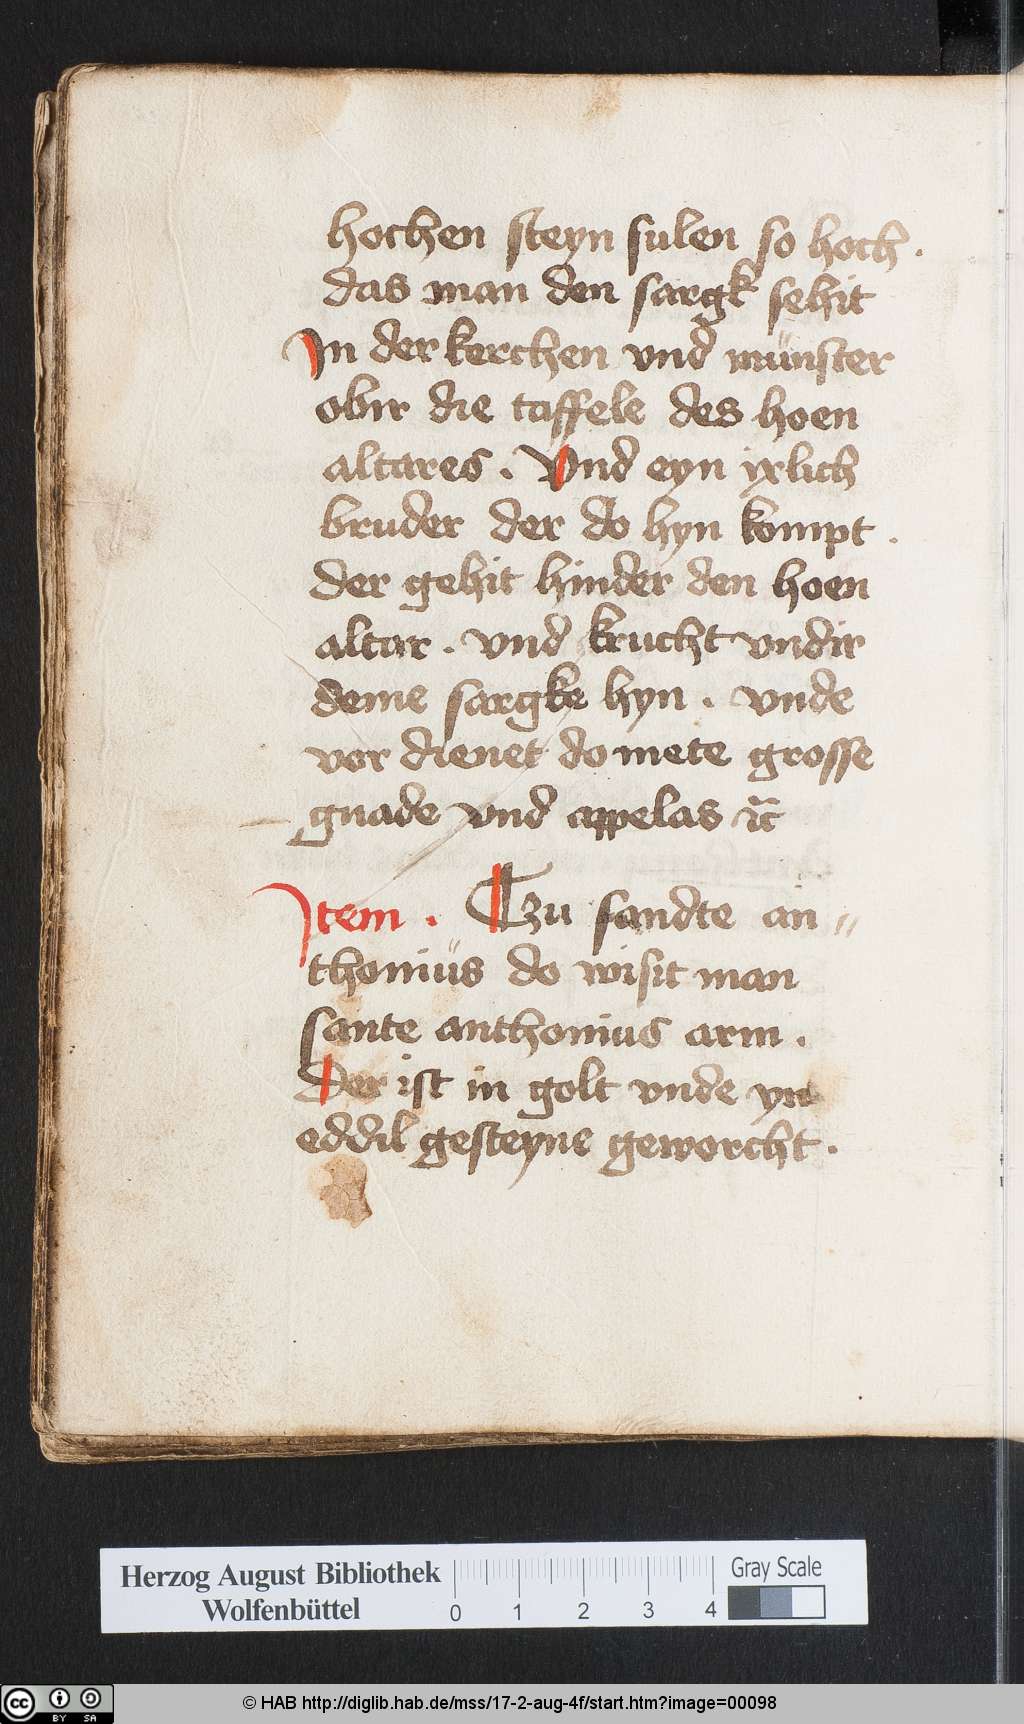 hochen steyn sulen so hoch .
das man den sargk sehit
In der kerchen vnd münster
obir die taffele des hoen
altares . Vnd eyn ixlich
bruder der do hyn kompt .
der gehit hinder den hoen
altar . vnd krucht vndir
deme sargke hyn . vnde
vor dienet do mete grosse
gnade vnd appelas ꝛc̃
Item . Tzu sandte an〃
thoniüs do wisit man
sante anthonius arm .
Der ist in golt vnde yn
eddil gesteyne geworcht .
Herzog August Bibliothek
Wolfenbüttel
0 1 2 3 4
Gray Scale
cc BY SA
© HAB http://diglib.hab.de/mss/17-2-aug-4f/start.htm?image=00098